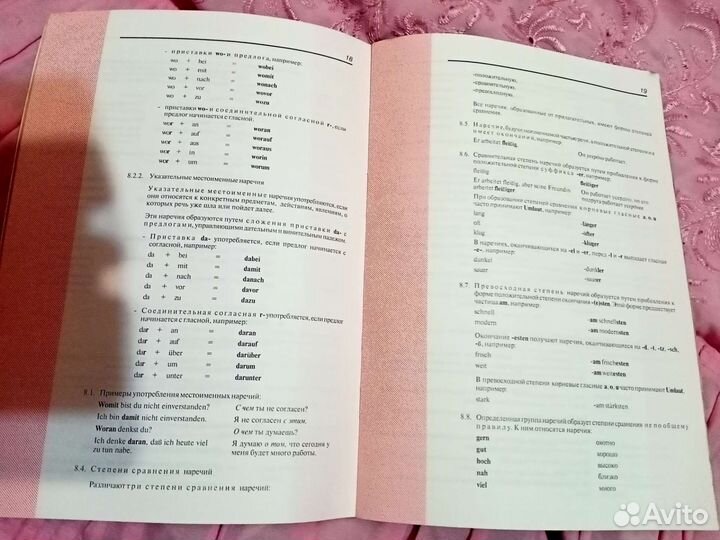 18
- приставки wo- и предлога, например:
wo + bei = wobei
wo + mit = womit
wo + nach = wonach
wo + vor = wovor
wo + zu = wozu
- приставки wo- и соединительной согласной r-, если
предлог начинается с гласной.
wor + an = woran
wor + auf = worauf
wor + aus = woraus
wor + in = worin
wor + um = worum
8.2.2. Указательные местоименные наречия
Указательные местоименные наречия употребляются, если
они относятся к конкретным предметам, действиям, явлениям, о
которых речь уже шла или пойдет далее.
Эти наречия образуются путем сложения приставки da- с
предлогами, управляющими дательным и винительным падежом.
- Приставка da- употребляется, если предлог начинается с
согласной, например:
da + bei = dabei
da + mit = damit
da + nach = danach
da + vor = davor
da + zu = dazu
- Соединительная согласная r- употребляется, если предлог
начинается с гласной, например:
dar + an = daran
dar + auf = darauf
dar + über = darüber
dar + um = darum
dar + unter = darunter
8.1. Примеры употребления местоименных наречий:
Womit bist du nicht einverstanden? С чем ты не согласен?
Ich bin damit nicht einverstanden. Я не согласен с этим.
Woran denkst du? О чем ты думаешь?
Ich denke daran, daß ich heute viel Я думаю о том, что сегодня у
zu tun habe. меня будет много работы.
8.4. Степени сравнения наречий
Различают три степени сравнения наречий:
19
-положительную,
-сравнительную,
-превосходную.
Все наречия, образованные от прилагательных, имеют формы степеней
сравнения.
8.5. Наречие, будучи неизменяемой частью речи, в положительной степени
имеет окончания, например:
Er arbeitet fleißig. Он упорно работает.
8.6. Сравнительная степень наречий образуется путем прибавления к форме
положительной степени суффикса -er, например:
fleißig fleißiger
Er arbeitet fleißig, aber seine Freundin Он работает упорно, но его
arbeitet fleißiger. подруга работает упорнее
При образовании степеней сравнения корневые гласные a, o, u
часто принимают Umlaut, например:
lang -länger
oft -öfter
klug -klüger
В наречиях, оканчивающихся на -el и -er, перед -l и -r выпадает гласная
-e, например:
dunkel -dunkler
sauer -saurer
8.7 Превосходная степень наречий образуется путем прибавления к
форме положительной степени окончания -(e)sten. Этой форме предшествует
частица am, например:
schnell -am schnellsten
modern -am modernsten
Окончание -esten получают наречия, оканчивающиеся на -d, -t, -tz, -sch,
-ß, например:
frisch -am frischesten
weit -am weitesten
В превосходной степени корневые гласные a, o, u часто принимают Umlaut,
например:
stark -am stärksten
8.8. Определенная группа наречий образует степени сравнения не по общему
правилу. К ним относятся наречия:
gern охотно
gut хорошо
hoch высоко
nah близко
viel много
Avito